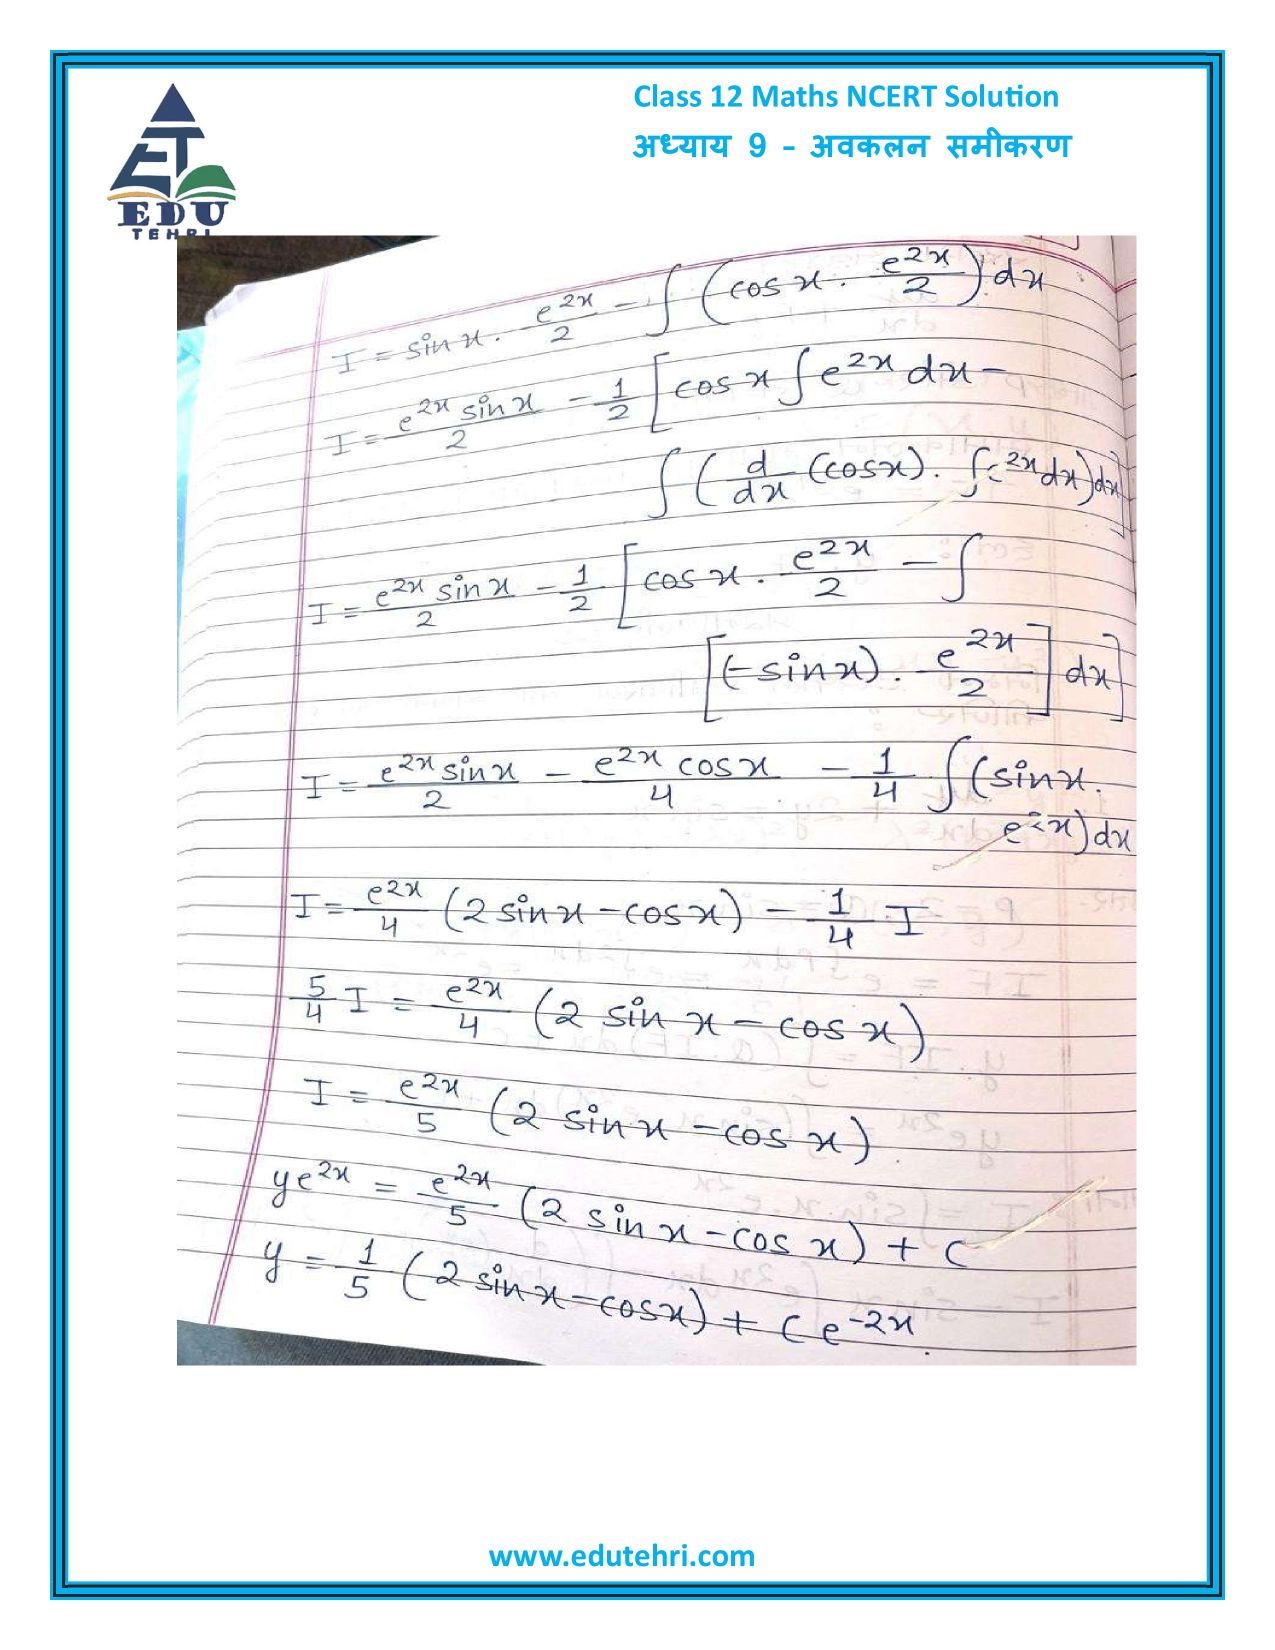 Class 12 Maths NCERT Solution
अध्याय 9 - अवकलन समीकरण
EDU
TEHRI
I = sin x . e^{2x}/2 - ∫ (cos x . e^{2x}/2) dx
I = e^{2x} sin x/2 - 1/2 [cos x ∫ e^{2x} dx -
∫ (d/dx (cos x) . ∫ e^{2x} dx) dx]
I = e^{2x} sin x/2 - 1/2 [cos x . e^{2x}/2 - ∫
[(-sin x) . e^{2x}/2] dx]
I = e^{2x} sin x/2 - e^{2x} cos x/4 - 1/4 ∫ (sin x .
e^{2x}) dx
I = e^{2x}/4 (2 sin x - cos x) - 1/4 I
5/4 I = e^{2x}/4 (2 sin x - cos x)
I = e^{2x}/5 (2 sin x - cos x)
ye^{2x} = e^{2x}/5 (2 sin x - cos x) + C
y = 1/5 (2 sin x - cos x) + C e^{-2x}.
www.edutehri.com